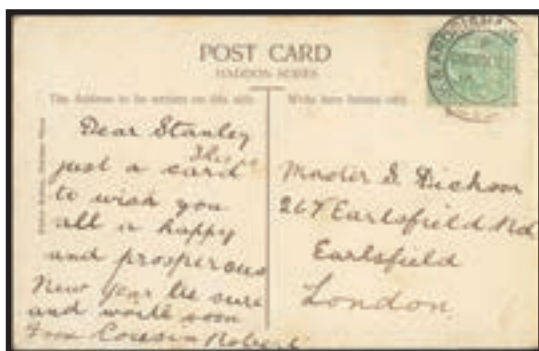 POST CARD
HADDON SERIES
The Address to be written on this side.
Write here Inland only.
Dear Stanley
This is
just a card
to wish you
all a happy
and prosperous
New year be sure
and write soon
From Cousin Robert
Master S. Dickson
267 Earlsfield Rd
Earlsfield
London